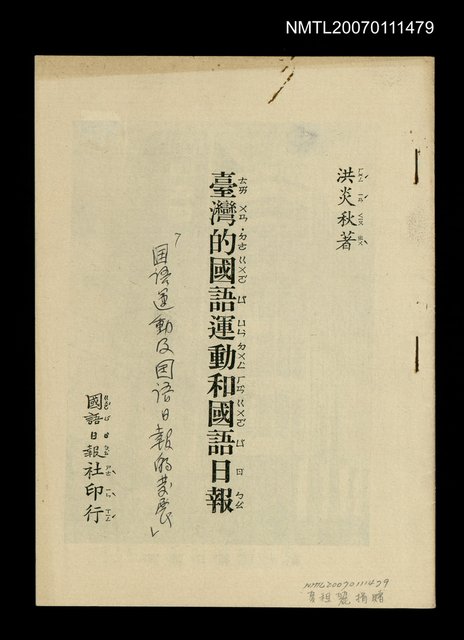 NMTL20070111479
洪炎秋著
臺灣的國語運動和國語日報
「国語運動及国語日報的发展」
國語日報社印行
NMTL20070111479
夏祖麗捐贈